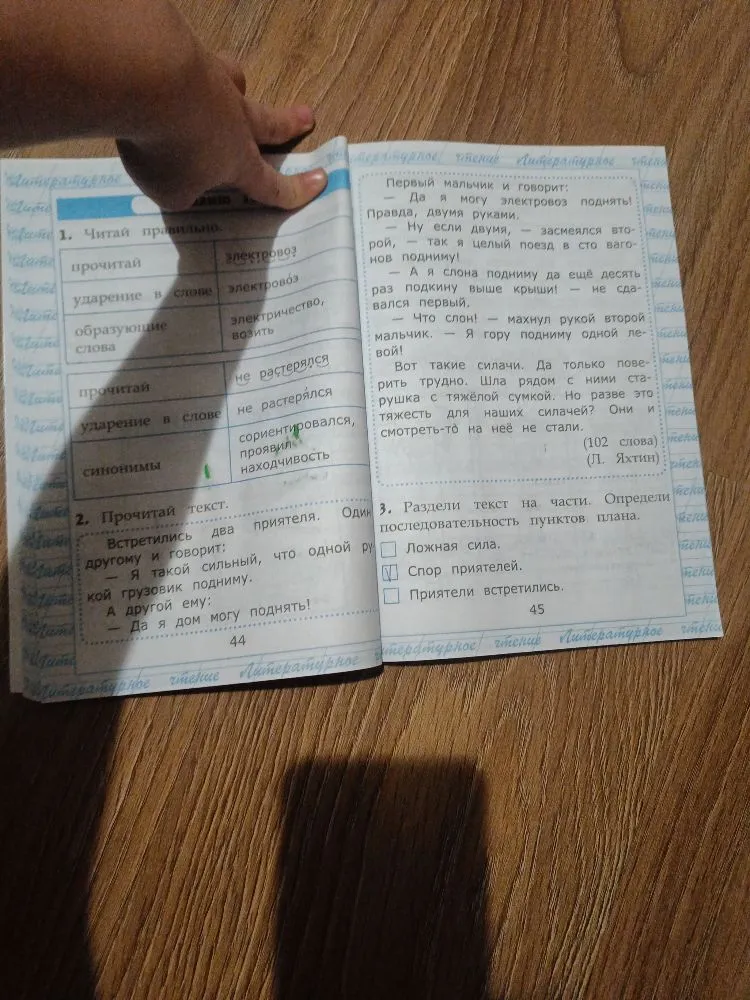 Литературное
1. Читай правильно.
прочитай электровоз
ударение в слове электрово́з
образующие слова электричество, возить
прочитай не растерялся
ударение в слове не растеря́лся
синонимы сориентировался, проявил находчивость
2. Прочитай текст.
Встретились два приятеля. Один
другому и говорит:
— Я такой сильный, что одной ру-
кой грузовик подниму.
А другой ему:
— Да я дом могу поднять!
44
Литературное чтение Литературное
Литературное чтение Литературное чтение
Первый мальчик и говорит:
— Да я могу электровоз поднять!
Правда, двумя руками.
— Ну если двумя, — засмеялся вто-
рой, — так я целый поезд в сто ваго-
нов подниму!
— А я слона подниму да ещё десять
раз подкину выше крыши! — не сда-
вался первый.
— Что слон! — махнул рукой второй
мальчик. — Я гору подниму одной ле-
вой!
Вот такие силачи. Да только пове-
рить трудно. Шла рядом с ними ста-
рушка с тяжёлой сумкой. Но разве это
тяжесть для наших силачей? Они и
смотреть-то на неё не стали.
(102 слова)
(Л. Яхтин)
3. Раздели текст на части. Определи
последовательность пунктов плана.
Ложная сила.
Спор приятелей.
Приятели встретились.
45
Литературное чтение Литературное чтение